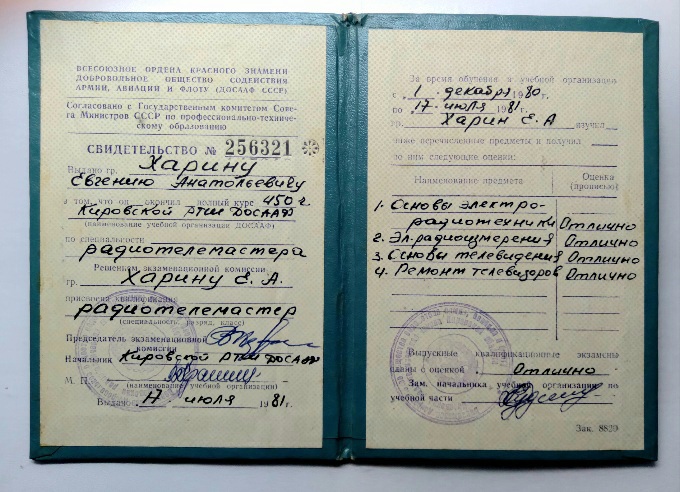 ВСЕСОЮЗНОЕ ОРДЕНА КРАСНОГО ЗНАМЕНИ
ДОБРОВОЛЬНОЕ ОБЩЕСТВО СОДЕЙСТВИЯ
АРМИИ, АВИАЦИИ И ФЛОТУ (ДОСААФ СССР)
Согласовано с Государственным комитетом Сове-
та Министров СССР по профессионально-техниче-
скому образованию
СВИДЕТЕЛЬСТВО № 256321
Выдано гр. Харину
Евгению Анатольевичу
в том, что он окончил полный курс 450 г.
Кировской РТШ ДОСААФ
(наименование учебной организации ДОСААФ)
по специальности
радиотелемастера
Решением экзаменационной комиссии
гр. Харину Е. А.
присвоена квалификация
радиотелемастер
(специальность, разряд, класс)
Председатель экзаменационной
комиссии
Начальник Кировской РТШ ДОСААФ
М. П.
(наименование учебной организации)
Выдано 17 июля 1981г.
За время обучения в учебной организации
с 1 декабря 1980г.
по 17 июля 1981г.
гр. Харин Е. А изучил
ниже перечисленные предметы и получил
по ним следующие оценки:
Наименование предмета Оценка (прописью)
1. Основы электро-
радиотехники Отлично
2. Эл.радиоизмерения Отлично
3. Основы телевидения Отлично
4. Ремонт телевизоров Отлично
Выпускные квалификационные экзамены
сданы с оценкой Отлично
Зам. начальника учебной организации по
учебной части
Зак. 8829